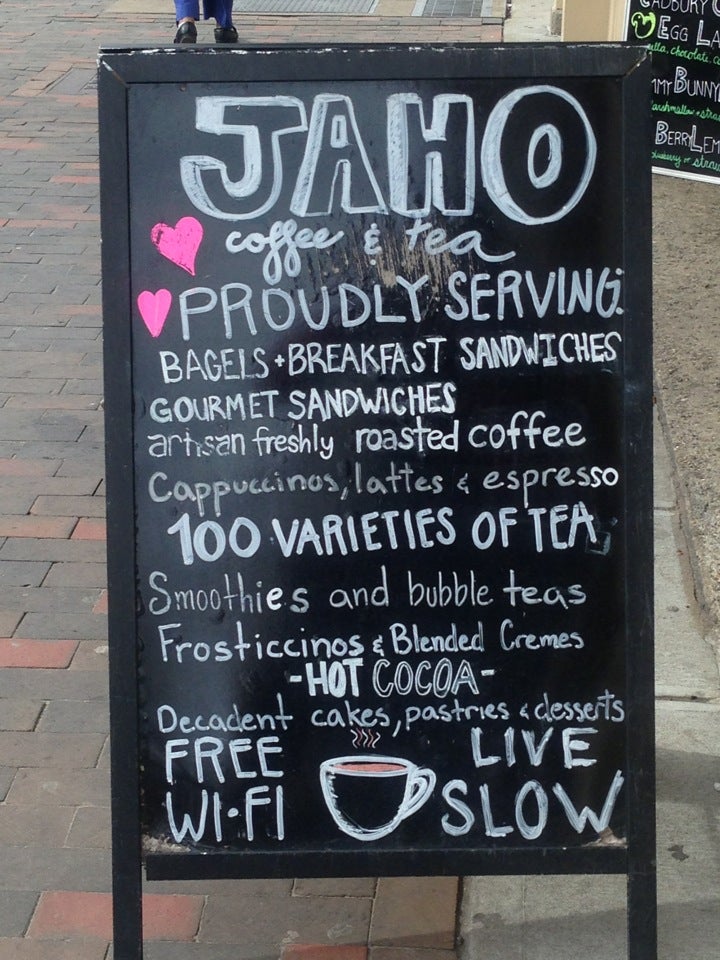 JAHO
coffee & tea
PROUDLY SERVING:
BAGELS + BREAKFAST SANDWICHES
GOURMET SANDWICHES
artisan freshly roasted coffee
Cappuccinos, lattes & espresso
100 VARIETIES OF TEA
Smoothies and bubble teas
Frosticcinos & Blended Cremes
- HOT COCOA -
Decadent cakes, pastries & desserts
FREE
WI-FI
LIVE
SLOW
CADBURY
EGG LA
chocolate
BUNNY